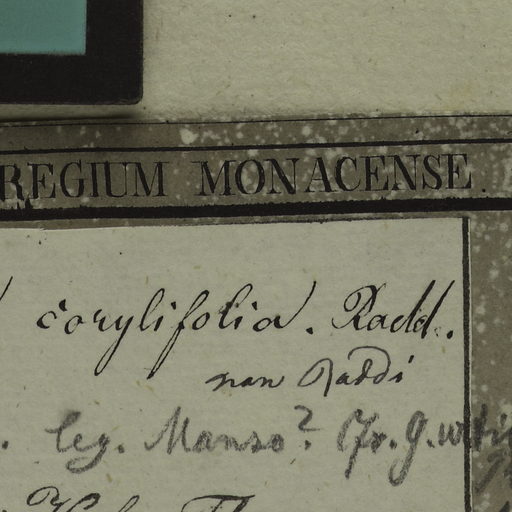 REGIUM MONACENSE.
corylifolia. Radd.
non Raddi
leg. Manso?